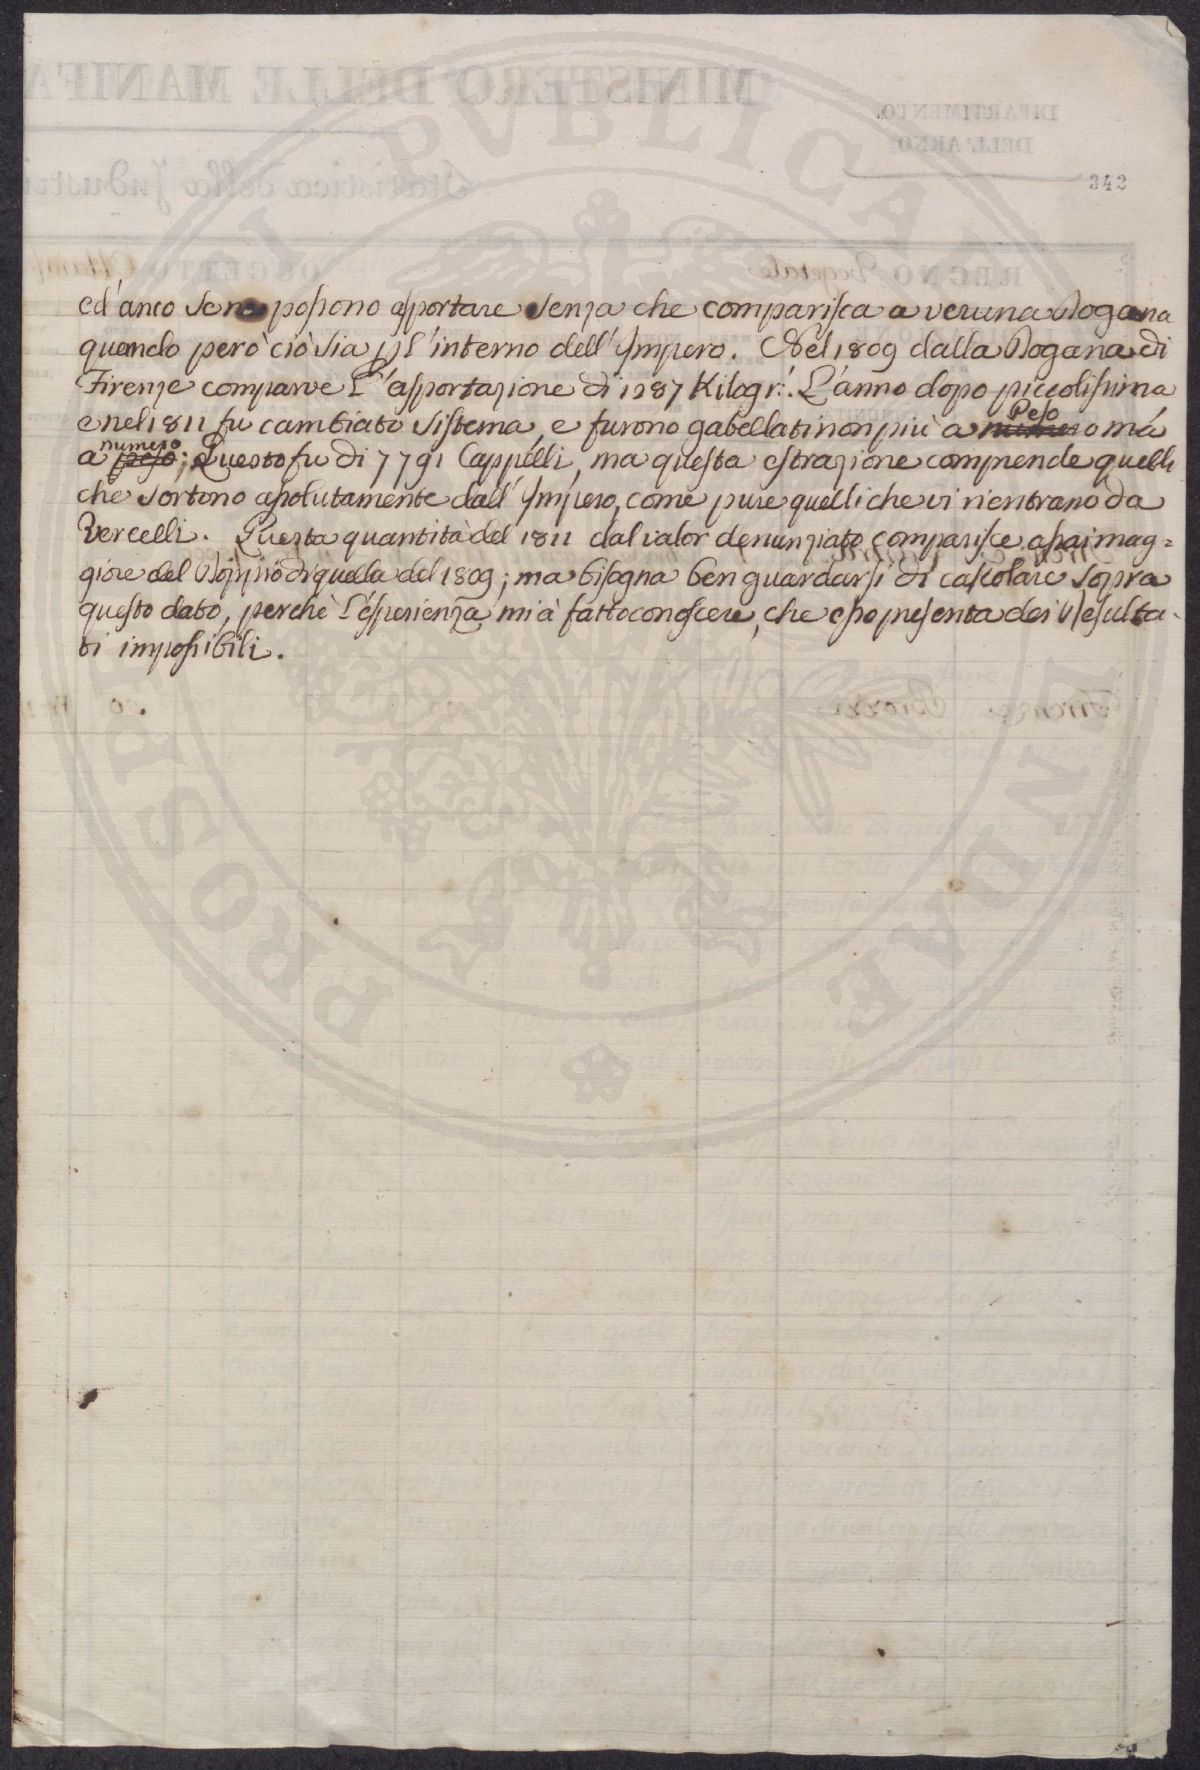 342
ed'anco se ne possono asportare senza che comparisca a veruna Dogana
quando però ciò sia p l'interno dell'Impero. Nel 1809 dalla Dogana di
Firenze comparve l'asportazione di 1287 Kilogr.: L'anno dopo piccolissima
e nel 1811 fu cambiato sistema, e furono gabellati non più a Peso mà
a numero; Questo fu di 7791 Cappelli, ma questa estrazione comprende quelli
che sortono assolutamente dall'Impero, come pure quelli che vi rientrano da
Vercelli. Questa quantità del 1811 dal valor denunziato comparisce assai mag=
giore del doppio di quella del 1809; ma bisogna ben guardarsi di calcolare sopra
questo dato, perchè l'esperienza mi à fatto conoscere, che esso presenta dei resulta-
ti impossibili.